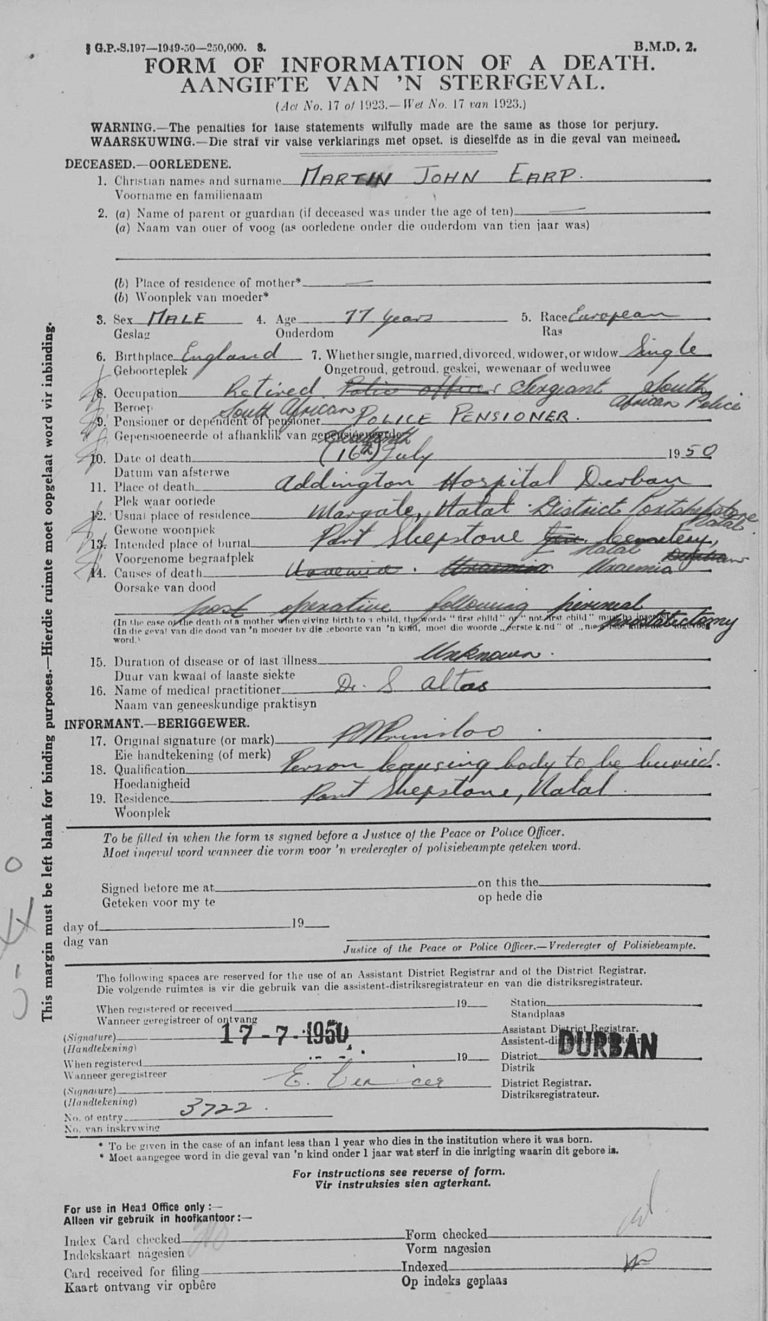 § G.P.-S.197—1949-50—250,000. S. B.M.D. 2.
FORM OF INFORMATION OF A DEATH.
AANGIFTE VAN 'N STERFGEVAL.
(Act No. 17 of 1923.—Wet No. 17 van 1923.)
WARNING.—The penalties for false statements wilfully made are the same as those for perjury.
WAARSKUWING.—Die straf vir valse verklarings met opset, is dieselfde as in die geval van meineed.
DECEASED.—OORLEDENE.
1. Christian names and surname MARTIN JOHN EARP.
Voorname en familienaam
2. (a) Name of parent or guardian (if deceased was under the age of ten) —
(a) Naam van ouer of voog (as oorledene onder die ouderdom van tien jaar was)
(b) Place of residence of mother* —
(b) Woonplek van moeder*
3. Sex MALE 4. Age 77 years 5. Race European
Geslag Ouderdom Ras
6. Birthplace England 7. Whether single, married, divorced, widower, or widow Single
Geboorteplek Ongetroud, getroud, geskei, wewenaar of weduwee
8. Occupation Retired Police officer Sergeant South
Beroep African Police
South African
9. Pensioner or dependent of pensioner POLICE PENSIONER.
Gepensioeneerde of afhanklik van gepensioeneerde
10. Date of death (16th) July 1950
Datum van afsterwe
11. Place of death Addington Hospital Durban
Plek waar oorlede
12. Usual place of residence Margate, Natal District Port Shepstone
Gewone woonplek Natal.
13. Intended place of burial Port Shepstone Cemetery,
Voorgenome begraafplek Natal
14. Causes of death Uraemia. Uraemia Uraemia
Oorsake van dood
post operative following perineal
prostatectomy
(In the case of the death of a mother when giving birth to a child, the words "first child" or "not first child" must be
(In die geval van die dood van 'n moeder by die geboorte van 'n kind, moet die woorde „eerste kind" of
word.)
15. Duration of disease or of last illness Unknown.
Duur van kwaal of laaste siekte
16. Name of medical practitioner Dr. S Altas
Naam van geneeskundige praktisyn
INFORMANT.—BERIGGEWER.
17. Original signature (or mark) Prinsloo
Eie handtekening (of merk)
18. Qualification Person causing body to be buried.
Hoedanigheid
19. Residence Port Shepstone, Natal.
Woonplek
To be filled in when the form is signed before a Justice of the Peace or Police Officer.
Moet ingevul word wanneer die vorm voor 'n vrederegter of polisiebeampte geteken word.
Signed before me at on this the
Geteken voor my te op hede die
day of 19
dag van
Justice of the Peace or Police Officer.—Vrederegter of Polisiebeampte.
The following spaces are reserved for the use of an Assistant District Registrar and of the District Registrar.
Die volgende ruimtes is vir die gebruik van die assistent-distriksregistrateur en van die distriksregistrateur.
When registered or received 19 Station
Wanneer geregistreer of ontvang Standplaas
(Signature) 17-7-1950 Assistant District Registrar.
(Handtekening)
When registered 19 District DURBAN
Wanneer geregistreer Distrik
(Signature) District Registrar.
(Handtekening) Distriksregistrateur.
No. of entry 3722.
No. van inskrywing
* To be given in the case of an infant less than 1 year who dies in the institution where it was born.
* Moet aangegee word in die geval van 'n kind onder 1 jaar wat sterf in die inrigting waarin dit gebore is.
For instructions see reverse of form.
Vir instruksies sien agterkant.
For use in Head Office only:—
Alleen vir gebruik in hoofkantoor:—
Index Card checked Form checked
Indekskaart nagesien Vorm nagesien
Card received for filing Indexed
Kaart ontvang vir opbêre Op indeks geplaas
This margin must be left blank for binding purposes.—Hierdie ruimte moet oopgelaat word vir inbinding.